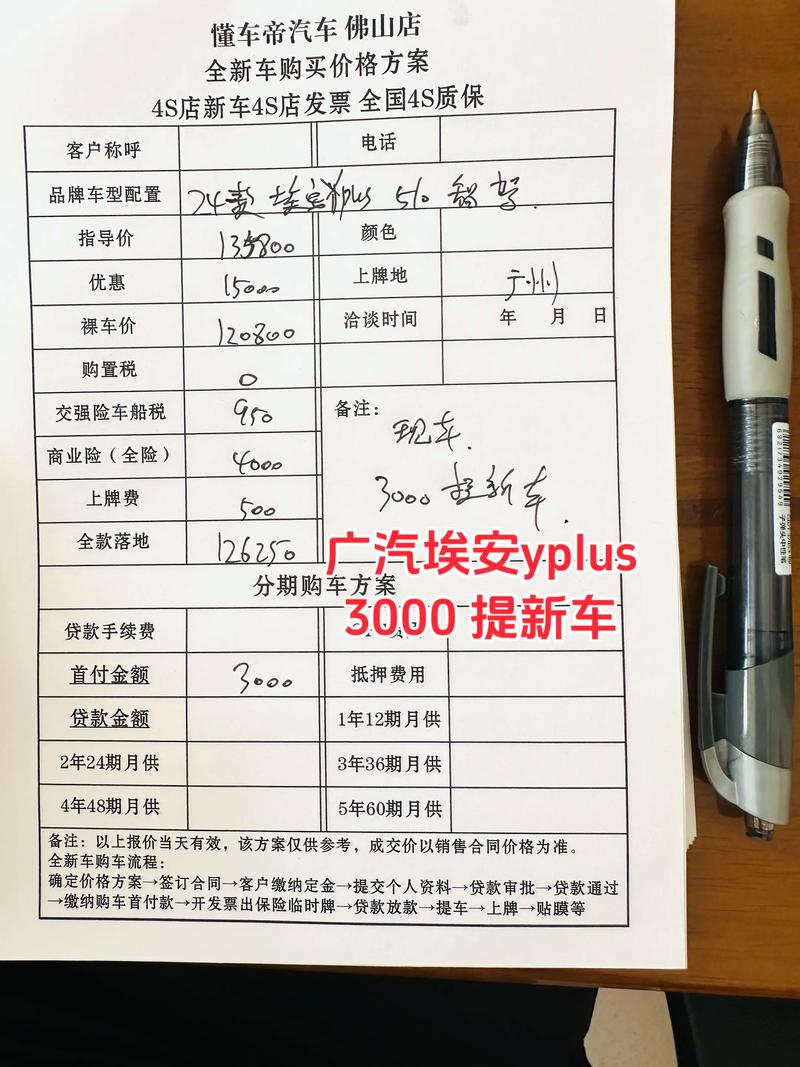 懂车帝汽车 佛山店
全新车购买价格方案
4S店新车4S店发票 全国4S质保
客户称呼 电话
品牌车型配置 24款 埃安Yplus 510 智驾.
指导价 135800 颜色
优惠 15000 上牌地 广州
裸车价 120800 洽谈时间 年 月 日
购置税 0
交强险车船税 950 备注:
现车.
商业险(全险) 4000
3000 提新车.
上牌费 500
全款落地 126250
广汽埃安yplus
3000 提新车
分期购车方案
贷款手续费
首付金额 3000 抵押费用
贷款金额 1年12期月供
2年24期月供 3年36期月供
4年48期月供 5年60期月供
备注:以上报价当天有效,该方案仅供参考,成交价以销售合同价格为准。
全新车购车流程:
确定价格方案→签订合同→客户缴纳定金→提交个人资料→贷款审批→贷款通过
→缴纳购车首付款→开发票出保险临时牌→贷款放款→提车→上牌→贴膜等
子弹头中性笔